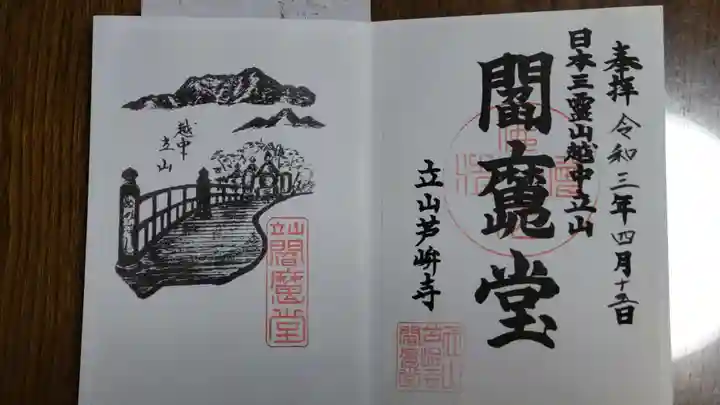 奉拝 令和三年四月十五日
日本三霊山越中立山
閻魔堂
立山芦峅寺
越中
立山
立山
閻魔堂